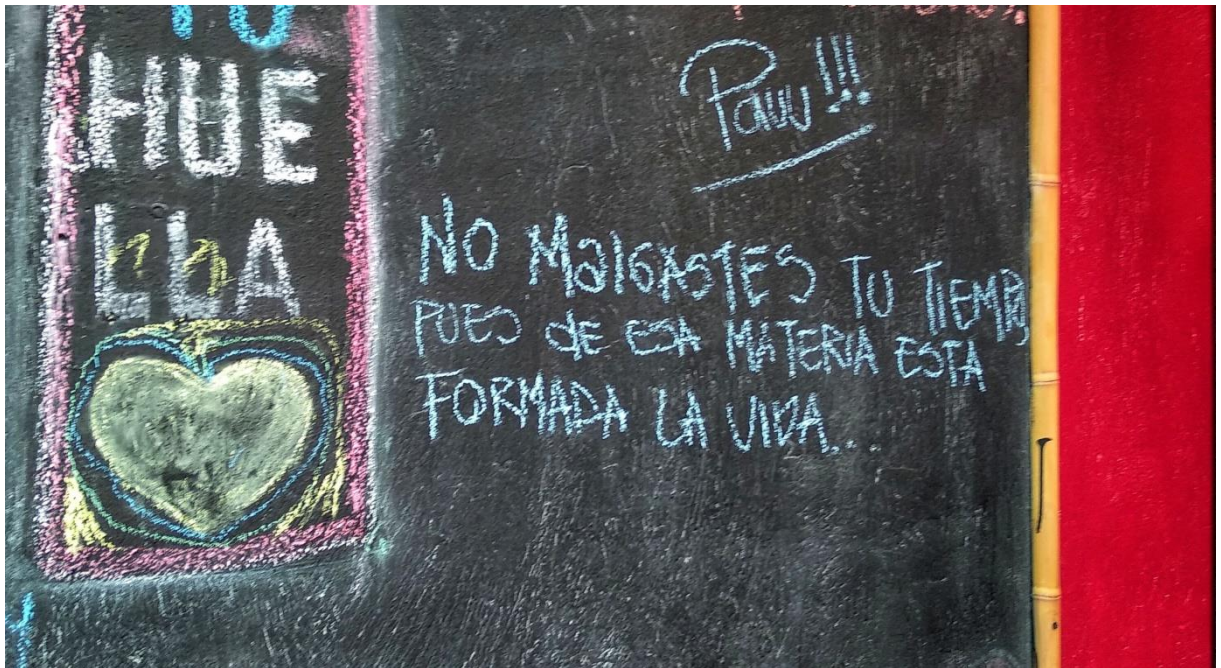 TU
HUE
LLA
Pauu!!!
NO MalGASTES TU TIEMPO,
PUES de ESA MATERIA ESTA
FORMADA LA VIDA..